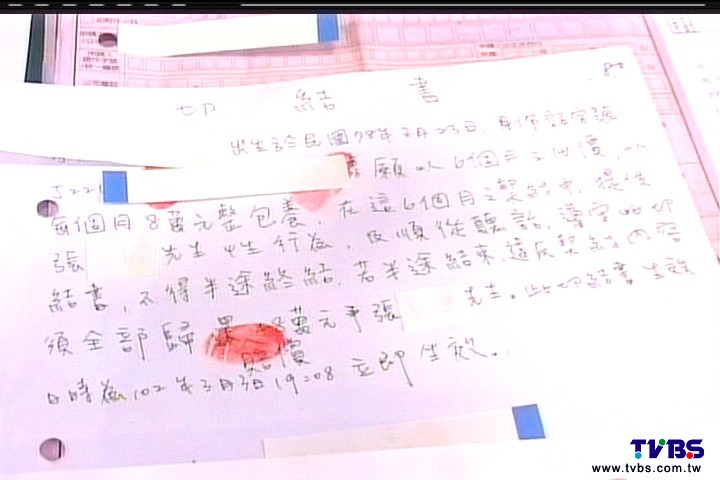 切 結 書
出生於民國78年7月23日,身份証字號
J221 願以6個月之代價,以
每個月8萬元整包養,在這6個月之契約中,提供
張 先生性行為,及順從聽話,遵守此切
結書,不得半途終結,若半途結束,違反契約內容
須全部歸還 8萬元予張 先生。此切結書生效
賠償
日時為102年3月 19:08 立即生效。
TVBS
www.tvbs.com.tw